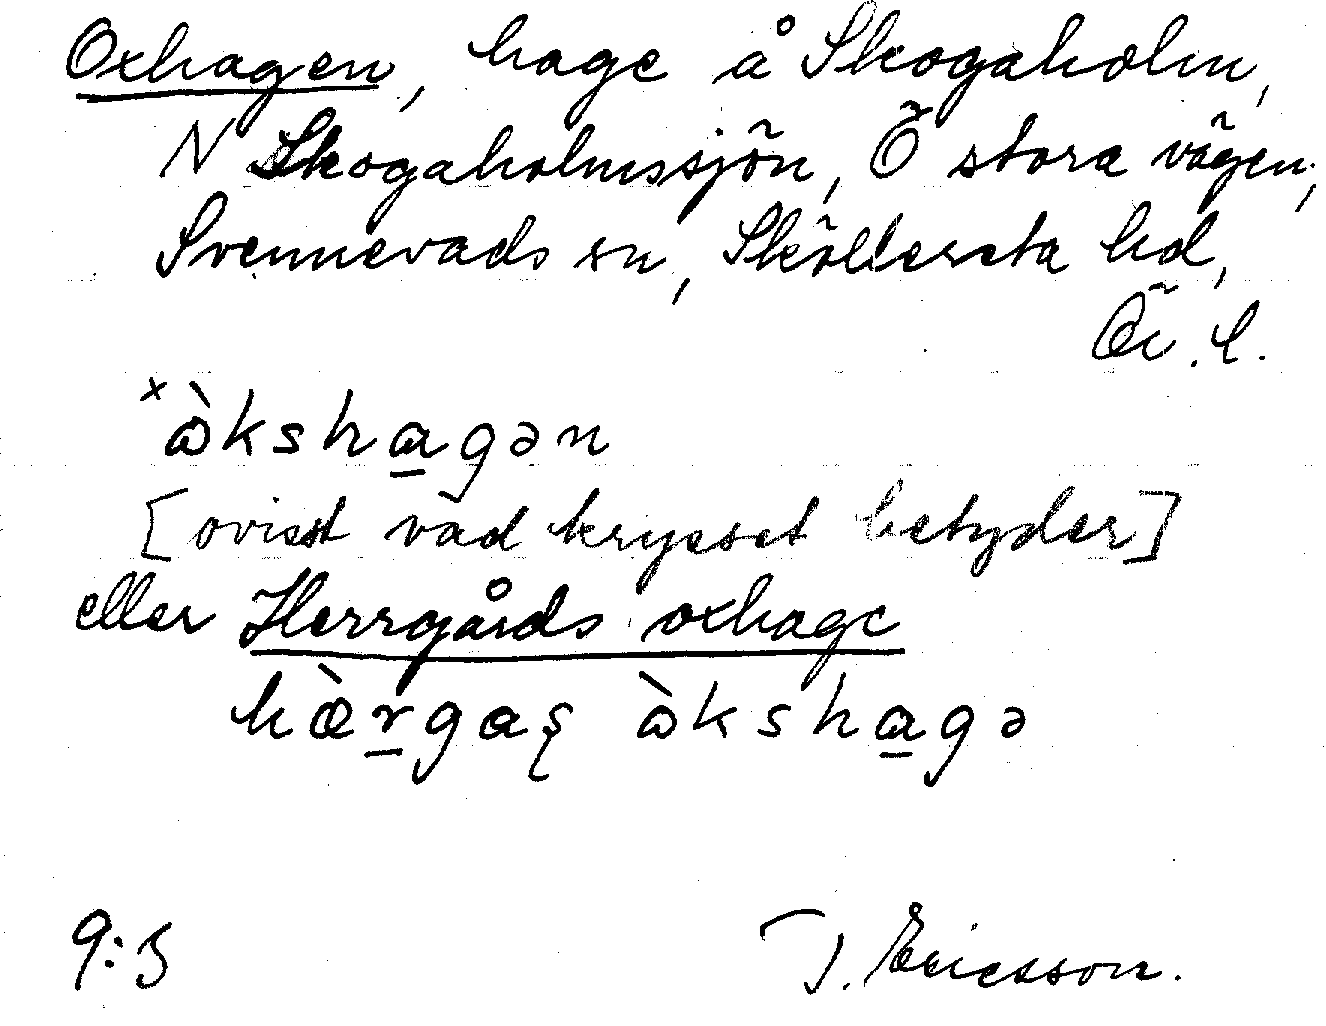 Oxhagen, hage å Skogaholm,
N Skogaholmssjön, Ö stora vägen,
Svennevads sn, Sköllersta hd,
Ör. l.
×ὼkshagən
[ovisst vad krysset betyder]
eller Herrgårds oxhage
hæ̀rgaş ὼkshagə
9:5
J. Ericsson.